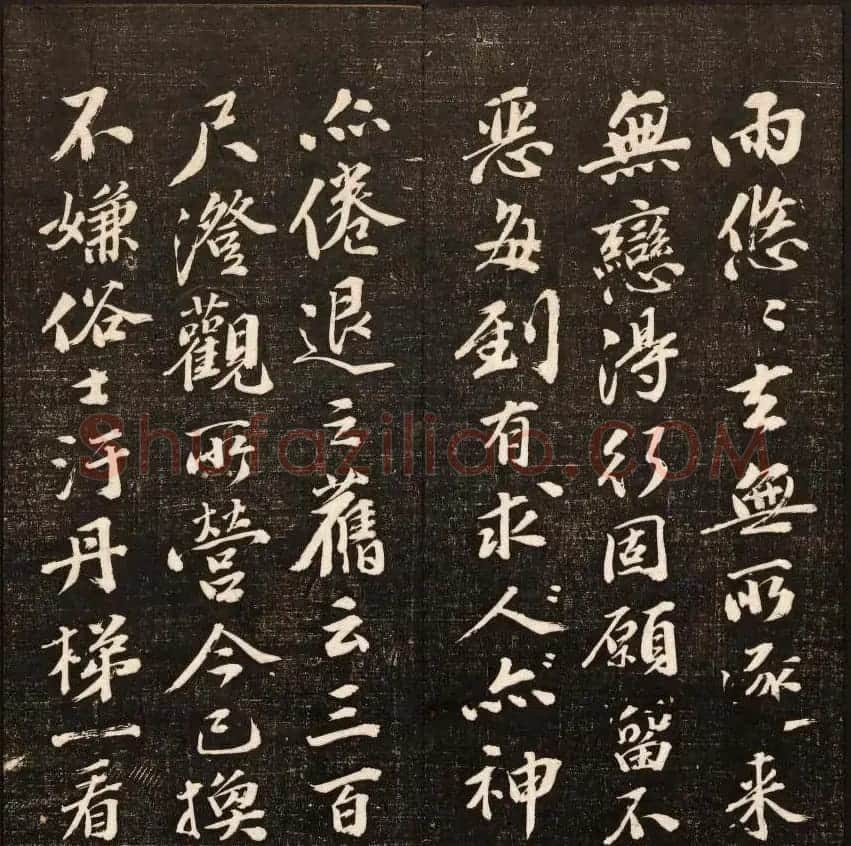 兩悠〻去無所逐来
無戀得行固願留不
惡每到有求人亦神
亦倦退之舊云三百
尺澄觀所營今已換
不嫌俗士汙丹梯一看
Shufaziliao.COM